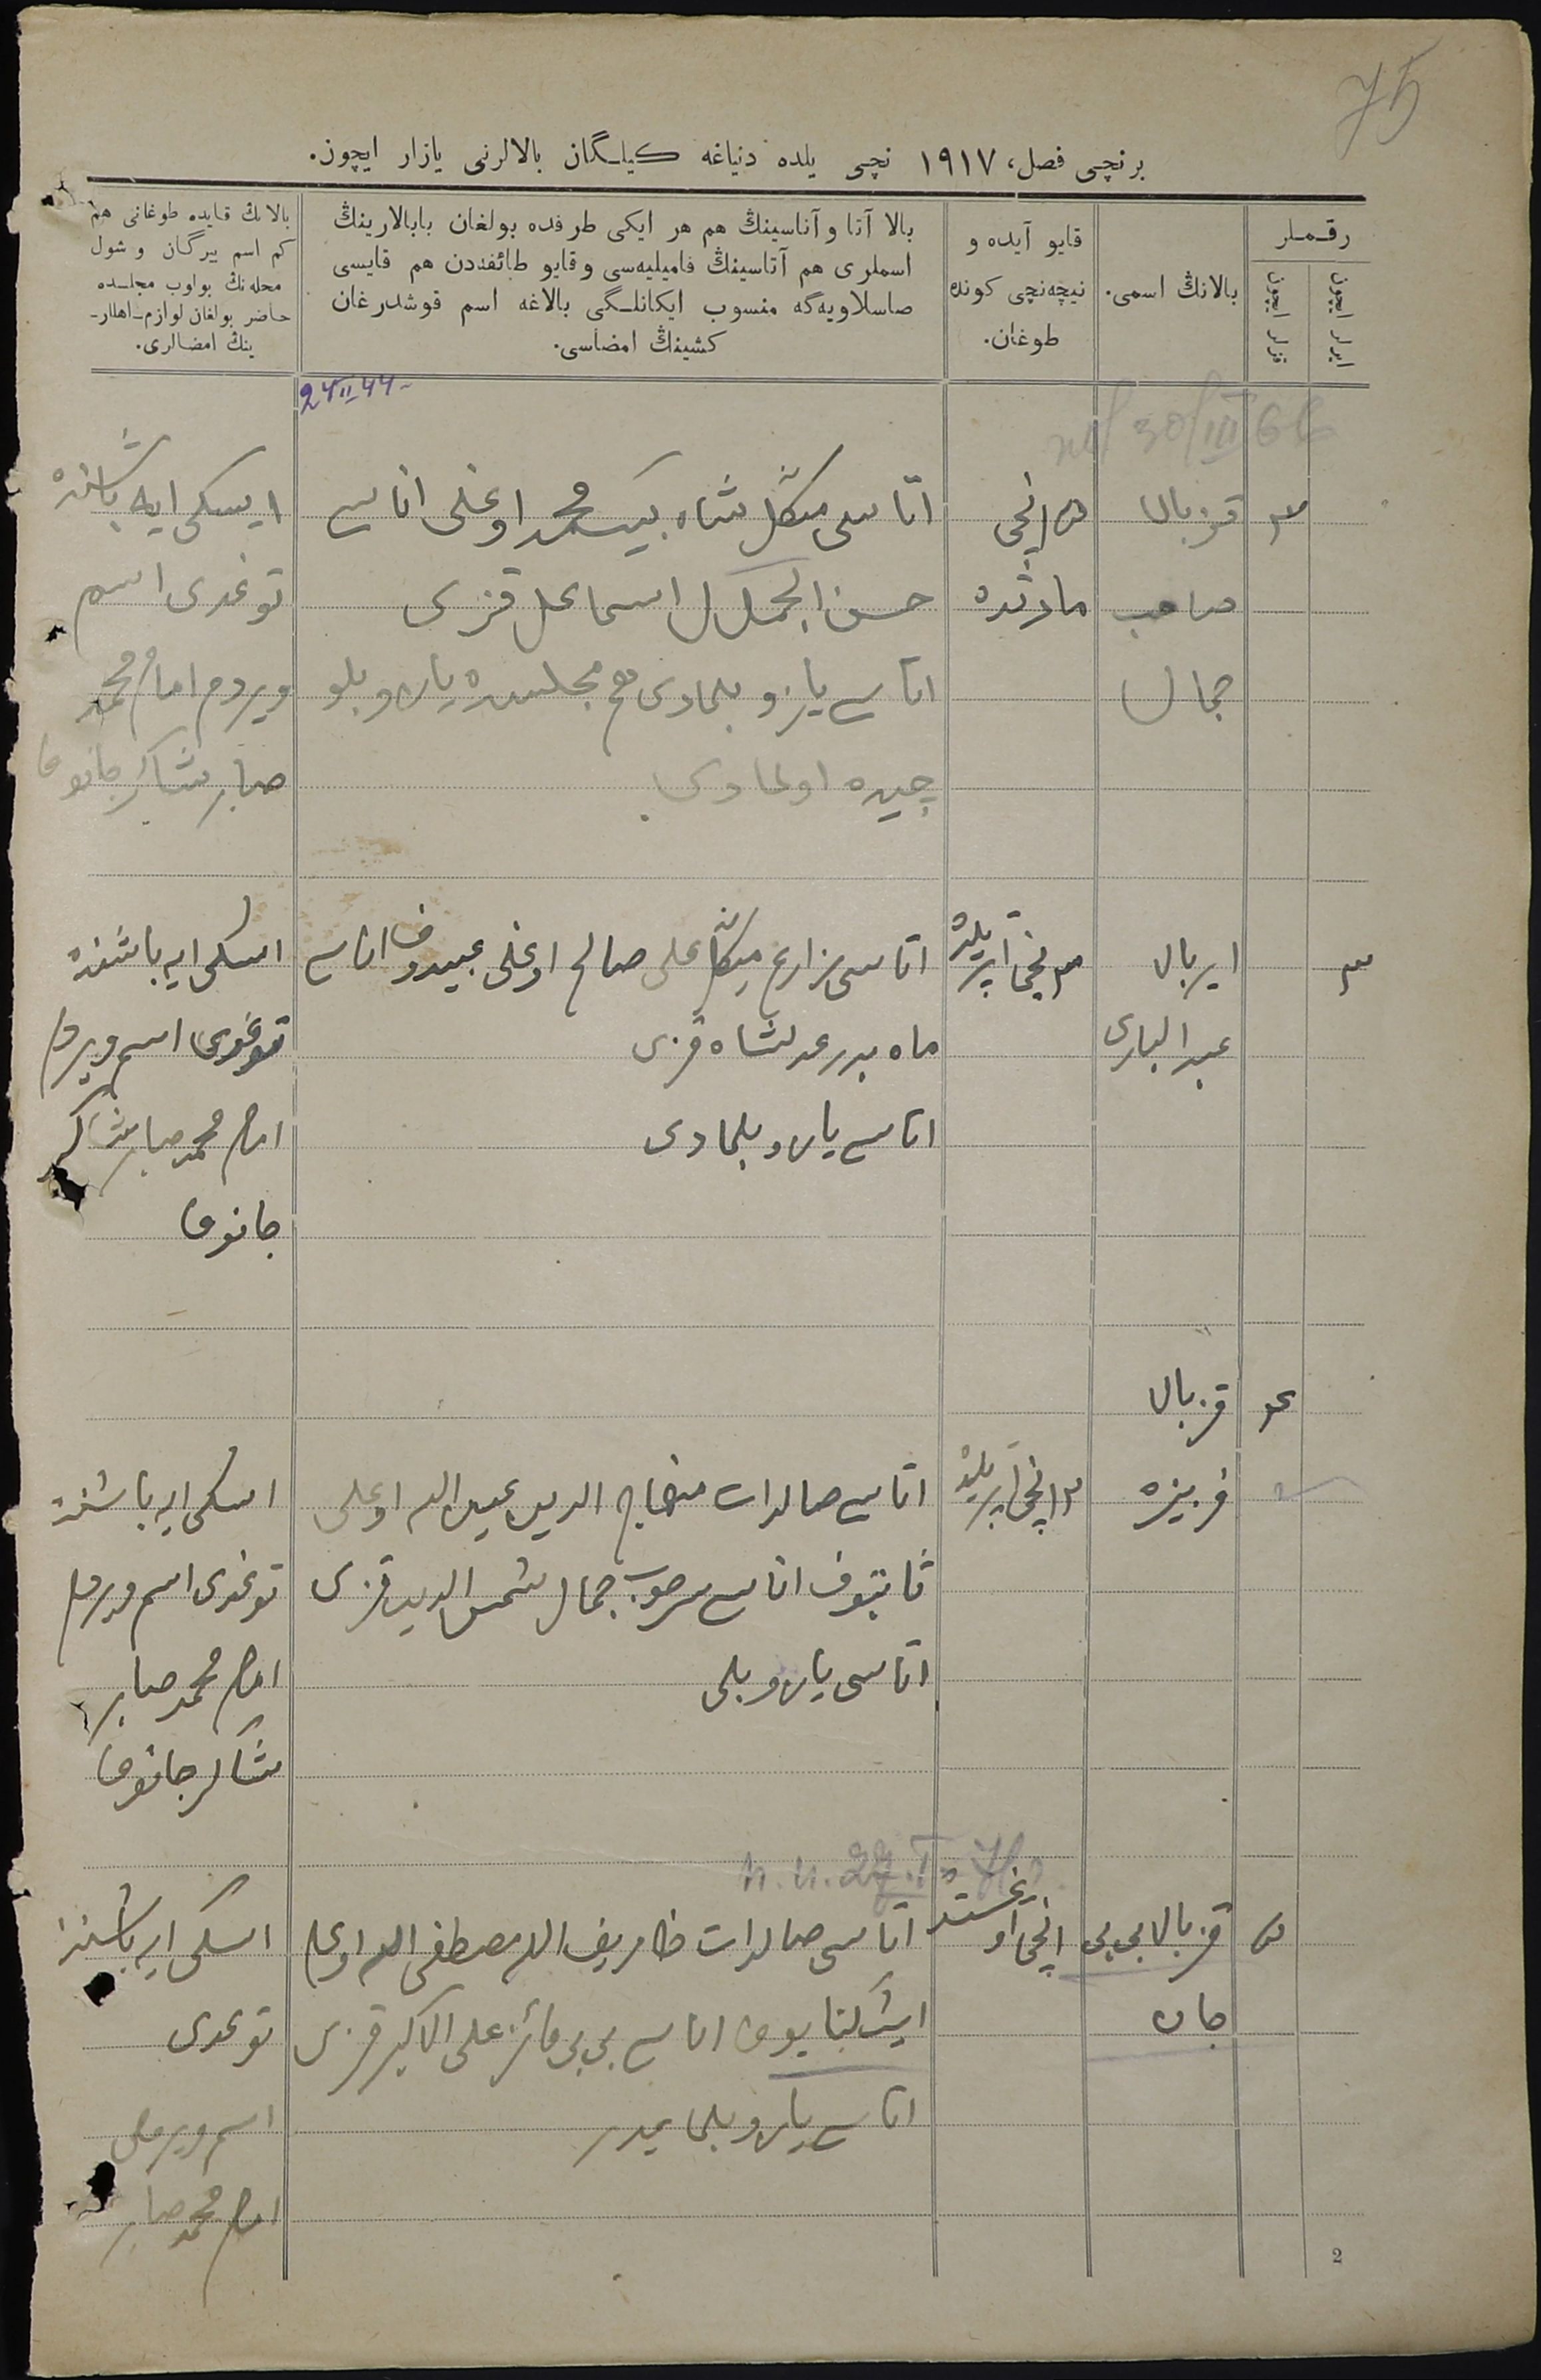 75
برنچی فصل، ١٩١٧ نچی یلده دنیاغه کیلگان بالالرنی یازار ایچون.
رقملر
ایرلر ایچون
قزلر ایچون
بالانڭ اسمی.
قایو آیده و
نیچه‌نچی کونده
طوغان.
بالا آتا و آناسینڭ هم هر ایکی طرفده بولغان بابالارینڭ
اسملری هم آتاسینڭ فامیلیه‌سی و قایو طائفه‌دن هم قایسی
صاسلاویه‌گه منسوب ایکانلگی بالاغه اسم قوشدرغان
کشینڭ امضاسی.
بالانڭ قایده طوغانی هم
کم اسم بیرگان و شول
محله‌نڭ بواوب مجلسده
حاضر بولغان لوازم اهللر-
ینڭ امضالری.
24 II 44
30/III 66
٣
قز بالا
صاحب
جمال
١٥نچی
مارتده
اتاسی شاه بیک محمد اوغلی اناسی
اسماعیل قزی
اتاسی یازو بلمادی هم مجلسده یازو بلو
چیده اولمادی
ایسکی ایه باشنده
توغدی اسم
ویردم امام محمد
صابر شاکرجانوف
٣
ایر بالا
عبد الباری
٣نچی اپریلده
اتاسی مزارع علی صالح اوغلی عبیدوف اناسی
ماه بدر عدلشاه قزی
اتاسی یازو بلمادی
اسکی ایه باشنده
توغدی اسم ویردم
امام محمد صابر شاکر
جانوف
٤
قز بالا
فریزه
١٣نچی اپریلده
اتاسی صالدات منهاج الدین عبید الله اوغلی
ثابتوف اناسی جمال شمس الدین قزی
اتاسی یازو بلی
اسکی ایه باشنده
توغدی اسم ویردم
امام محمد صابر
شاکرجانوف
И.И. 27.I
٥
قز بالا بی بی
جان
١نچی اوغستده
اتاسی صالدات ظریف الله مصطفی الله اوغلی
اناسی بی بی فائز علی الاکبر قزی
اتاسی یازو بلمایدر
اسکی ایه باشنده
توغدی
اسم ویردم
امام محمد صابر
2